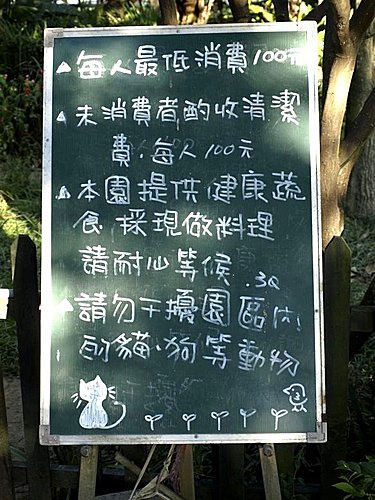 ▲每人最低消費100元
▲未消費者酌收清潔
費.每人100元
▲本園提供健康蔬
食採現做料理
請耐心等候.3Q
▲請勿干擾園區內
的貓.狗等動物